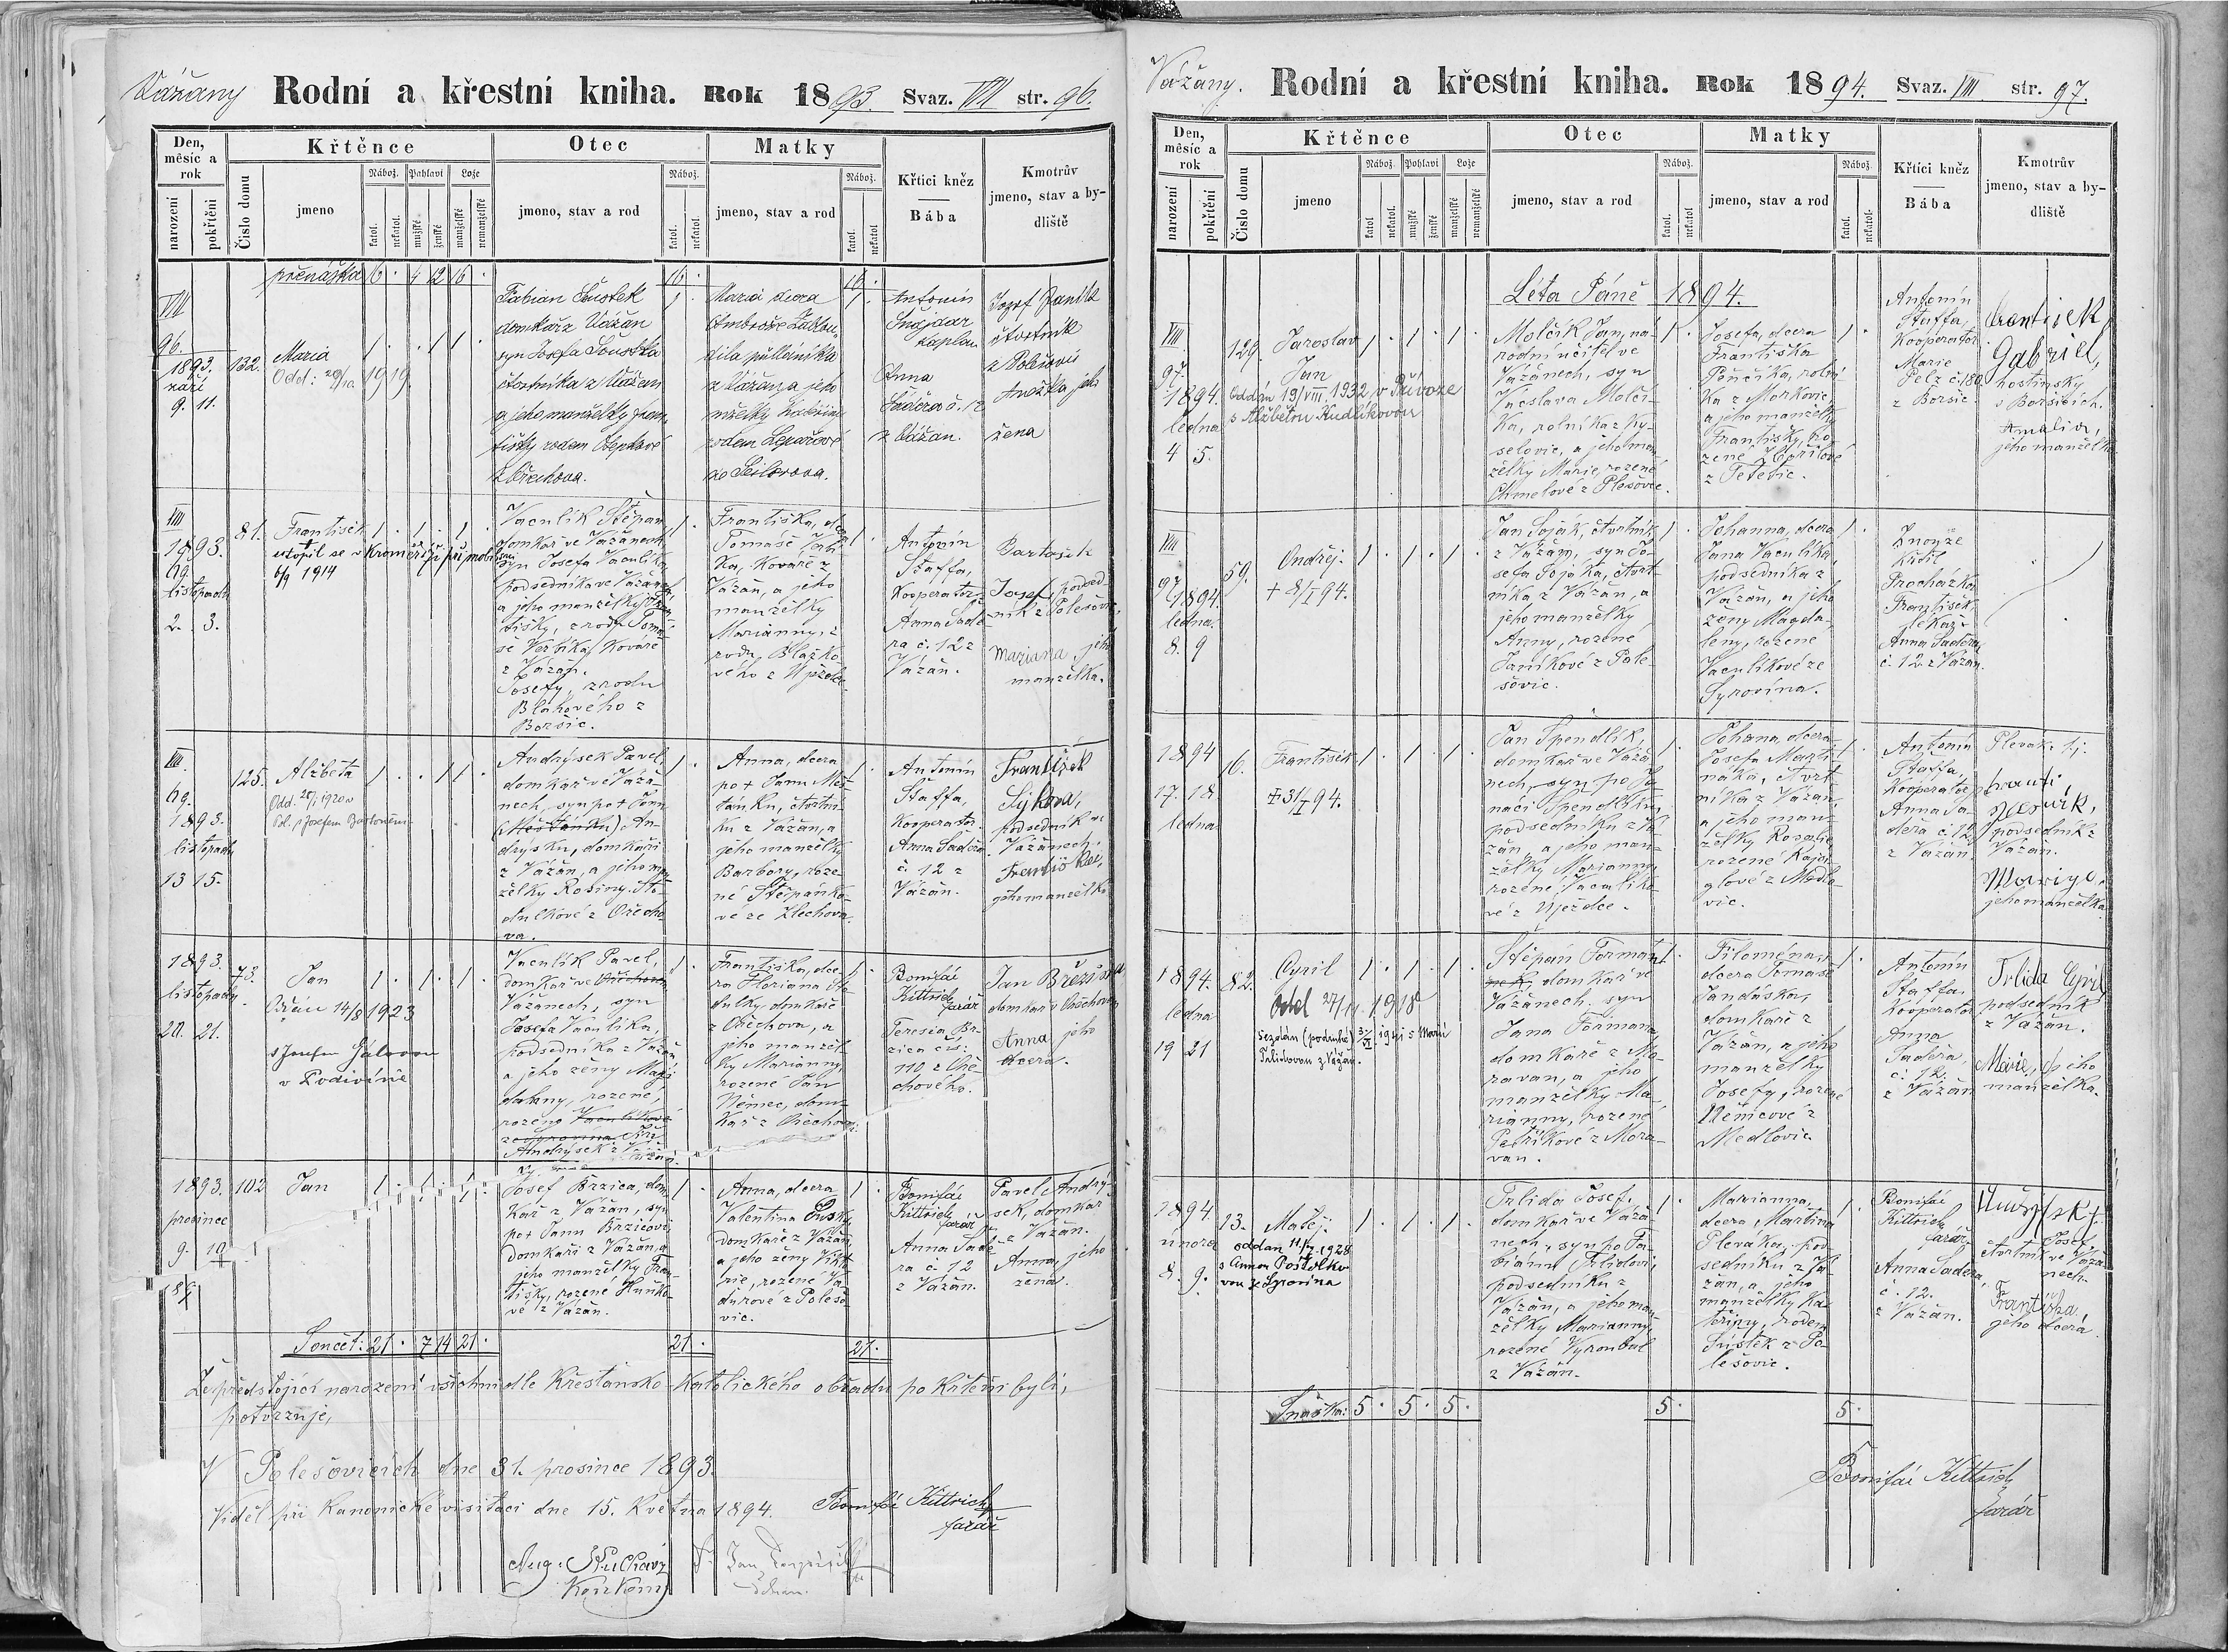 Vážany Rodní a křestní kniha. Rok 1893. Svaz. VIII str. 96.
Den, měsíc a rok
narození
pokřtění
Číslo domu
Křtěnce
jmeno
Nábož.
katol.
nekatol.
Pohlaví
mužské
ženské
Lože
manželské
nemanželské
Otec
jmeno, stav a rod
Nábož.
katol.
nekatol
Matky
jmeno, stav a rod
Nábož.
katol.
nekatol
Křtici kněz
Bába
Kmotrův
jmeno, stav a by-
dliště
přenáška 16 . 4 12 16 . 16 . 16 .
VIII
96.
1893.
září
9. 11.
132.
Maria
Odd: 20/10 1919
1 . . 1 1 .
Fabian Šustek
domkář z Vážan
syn Josefa Šoustka
čtvrtníka z Vážan
a jeho manželky Fran-
tišky rodem
z Ořechova.
1 .
Maria dcera
Ambrože
díla půlláníka
z Vážan a jeho
mželky
rodem
ze
1 .
Antonín
Šnajdar
kaplan
Anna
Saděra č. 12
z Vážan.
Jozef Janík
čtvrtník
z Polešovic
Anežka jeho
žena
VIII
1893.
listopadu
2. 3.
81.
František
utopil se v Kroměříži při mobilisaci
6/9 1914
1 . 1 . 1 .
Vaculík Štěpan,
domkář ve Vážanech,
syn Josefa Vaculíka,
podsedníka ve Vážanech,
a jeho manželky Fran-
tišky, z rodu Toma-
še Veřtíka, kováře
z Vážan.
Josefy, z rodu
Bláhového z
Boršic.
1 .
Františka, dcera
Tomáše
ka, kováře z
Vážan, a jeho
manželky
Marianny, z
rodu Blažko-
vého z Újezdce.
1 .
Antonín
Štaffa,
Kooperator
Anna Sadě-
ra č. 12 z
Vážan.
Bartošík
Josef, podsed-
ník z Polešovic.
Mariana, jeho
manželka.
VIII
1893.
listopadu
13 15.
125.
Alžběta
Odd. 20/1 1920 v
Pol. s Josefem Bartoněm
1 . . 1 1 .
Andrýsek Pavel,
domkář ve Váža-
nech, syn po † Janu
(Měšťánku) An-
drýsku, domkáři
z Vážan, a jeho man-
želky Rosiny Sto-
dulkové z Ořecho-
va.
1 .
Anna, dcera
po † Janu Měš-
ťánku, čtvrtní-
ku z Vážan, a
jeho manželky
Barbory, roze-
né Štěpánko-
vé ze Zlechova.
1 .
Antonín
Štaffa,
kooperator.
Anna Saděra
č. 12 z
Vážan.
František
Sýkora,
podsedník ve
Vážanech.
Františka,
jeho manželka
1893.
listopadu
20. 21.
73.
Jan
Oddán 14/8 1923
s Josefou Gálovou
v Podivíně
1 . 1 . 1 .
Vaculík Pavel,
domkář ve Ořechově
Vážanech, syn
Josefa Vaculíka,
podsedníka z Vážan,
a jeho ženy Mag-
daleny, rozené,
rozené Vaculíkové
ze Syrovína
Andrýsek z Vážan.
1 .
Františka, dce-
ra Floriana Sto-
dulky, domkáře
z Ořechova, a
jeho manžel-
ky Marianny,
rozené Jan
Němec, dom-
kář z Ořechova.
1 .
Bonifác
Kittrich
farář
Teresia Br-
zica čís:
110 z Oře-
chového.
Jan Březina
domkář v Ořechově
Anna jeho
dcera.
1893.
prosince
9. 10
102
Jan
1 . 1 . 1 .
Josef Brzica, dom-
kář z Vážan, syn
po † Janu Brzicovi
domkáři z Vážan, a
jeho manželky Fran-
tišky, rozené Huňko-
vé z Vážan.
1 .
Anna, dcera
Valentina Husky,
domkáře z Vážan,
a jeho ženy Vikto-
rie, rozené Va-
ďurové z Polešo-
vic.
1 .
Bonifác
Kittrich
farář
Anna Sadě-
ra č 12
z Vážan.
Pavel Andrý-
sek, domkář
z Vážan.
Anna, jeho
žena.
Součet: 21 . 7 14 21 . 21 . 21 .
Že předstojící narození všichni dle křesťansko-katolického obřadu pokřtěni byli,
potvrzuje,
V Polešovicích dne 31. prosince 1893.
Bonifác Kittrich
farář
Viděl při kanonické visitaci dne 15. Května 1894.
Vážany. Rodní a křestní kniha. Rok 1894. Svaz. VIII str. 97.
Den, měsíc a rok
narození
pokřtění
Číslo domu
Křtěnce
jmeno
Nábož.
katol
nekatol.
Pohlaví
mužské
ženské
Lože
manželské
nemanželské
Otec
jmeno, stav a rod
Nábož.
katol.
nekatol
Matky
jmeno, stav a rod
Nábož.
katol.
nekatol.
Křtíci kněz
Bába
Kmotrův
jmeno, stav a by-
dliště
Léta Páně 1894.
VIII
97
1894.
ledna
4 5.
129.
Jaroslav
Jan
Oddán 19/VIII. 1932 v Přívoze
s Alžbětou Kudlíkovou
1 . 1 . 1 .
Molčík Jan, ná-
rodní učitel ve
Vážanech, syn
Václava Molčí-
ka, rolníka z Ky-
selovic, a jeho man-
želky Marie, rozené
Chmelové z Plešovce.
1 .
Josefa, dcera
Františka
Pěnčíka, rolní-
ka z Morkovic,
a jeho manželky
Františky, ro-
zené
z Tetětic.
1 .
Antonín
Štaffa,
Kooperator
Marie
Pelz č. 180
z Boršic.
František
Gabriel,
hostinský
v Boršicích.
Amalia,
jeho manželka
VIII
97
1894.
ledna
8. 9
59.
Ondřej.
† 8/I 94.
1 . 1 . 1 .
Jan Soják, čtvrtník
z Vážan, syn Jo-
sefa Sojáka, čtvrt-
níka z Vážan, a
jeho manželky
Anny, rozené
Janíkové z Pole-
šovic.
1 .
Johanna, dcera
Jana Vaculíka,
podsedníka z
Vážan, a jeho
ženy Magda-
leny, rozené
Vaculíkové ze
Syrovína.
1 .
Z nouze
křtil
Procházka
František,
lékař.
Anna Saděra,
č. 12 z Vážan.
1894
17. 18
ledna
16.
František
† 31/I 94.
1 . 1 . 1 .
Jan Špendlík,
domkář ve Váža-
nech, syn po Ig-
náci Špendlíku,
podsedníku z Vá-
žan, a jeho man-
želky Marianny,
rozené Vaculíko-
vé z Újezdce.
1 .
Johana, dcera
Josefa Marti-
náka, čtvrt-
níka z Vážan,
a jeho man-
želky Rozalie
rozené
glové z Medlo-
vic.
1 .
Antonín
Štaffa,
Kooperator
Anna Sa-
děra č 12
z Vážan.
podsedník z
Vážan.
Mariya,
jeho manželka
1894.
ledna
19 21
82.
Cyril
Odd 27/11. 1918
Sezdán (podruhé) 1941 s Marií
Trlidovou z Vážan.
1 . 1 . 1 .
Štěpán Formán-
nek, domkář ve
Vážanech, syn
Jana Formana
domkáře z Mo-
ravan, a jeho
manželky Ma-
rianny, rozené
Petříkové z Mora-
van.
1 .
Filoména,
dcera Tomáše
Jandáska,
domkáře z
Vážan, a jeho
manželky
Josefy, rozené
Němcové z
Medlovic.
1 .
Antonín
Štaffa,
Kooperator
Anna
Saděra,
č. 12.
z Vážan
Trlida Cyril
podsedník
z Vážan.
Marie, jeho
manželka.
1894.
února
8. 9.
13.
Matěj.
oddan 11/7. 1928
s Annou Poštolko-
vou ze Syrovína
1 . 1 . 1 .
Trlida Josef,
domkář ve Váža-
nech, syn po Fa-
biánu Trlidovi,
podsedníku z
Vážan, a jeho man-
želky Marianny,
rozené Vykoukal
z Vážan.
1 .
Marianna,
dcera Martina
Plevaka, pod-
sedníku z Vá-
žan, a jeho
manželky Ka-
teřiny, rodem
Šustek z Po-
lešovic.
1 .
Bonifác
Kittrich
farář
Anna Saděra,
č. 12.
z Vážan.
Josef,
čtvrtník ve Váža-
nech.
Františka,
jeho dcera.
Snáška: 5 . 5 . 5 . 5 . 5 .
Bonifác Kittrich
farář